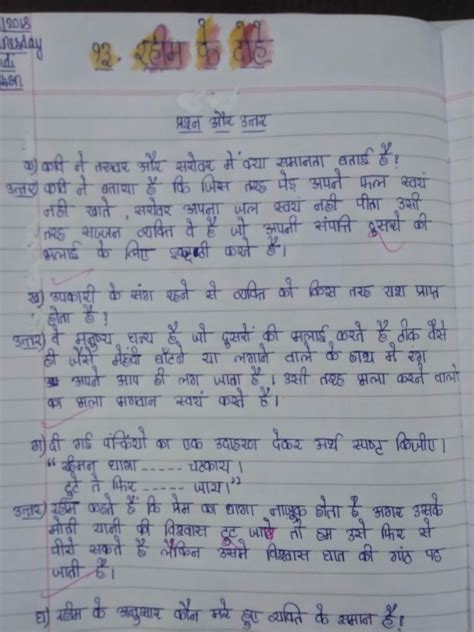 2018
१२. रहीम के दोहे
प्रश्न और उत्तर
क) कवि ने तरुवर और सरोवर में क्या समानता बताई है?
उत्तर) कवि ने बताया है कि जिस तरह पेड़ अपने फल स्वयं
नही खाते, सरोवर अपना जल स्वयं नही पीता उसी
तरह सज्जन व्यक्ति वे है जो अपनी संपत्ति दूसरो की
भलाई के लिए इकट्ठी करते है।
ख) उपकारी के संग रहने से व्यक्ति को किस तरह यश प्राप्त
होता है?
उत्तर) वे मनुष्य धन्य है जो दूसरों की भलाई करते है, ठीक वैसे
ही जैसे मेहंदी बाँटने या लगाने वाले के हाथ में रंग
अपने आप ही लग जाता है। उसी तरह भला करने वालो
का भला भगवान स्वयं करते है।
ग) दी गई पंक्तियों का एक उदाहरण देकर अर्थ स्पष्ट किजीए।
“रहिमन धागा ----- चटकाय।
टूटे ते फिर ----- जाय।”
उत्तर) रहीम कहते हैं कि प्रेम का धागा नाजुक होता है अगर उसके
मोती यानी की विश्वास टूट जाऐ तो हम उसे फिर से
पीरो सकते है लेकिन उसमे विश्वास घात की गांठ पड़
जाती है।
घ) रहीम के अनुसार कौन मरे हुए व्यक्ति के समान है?